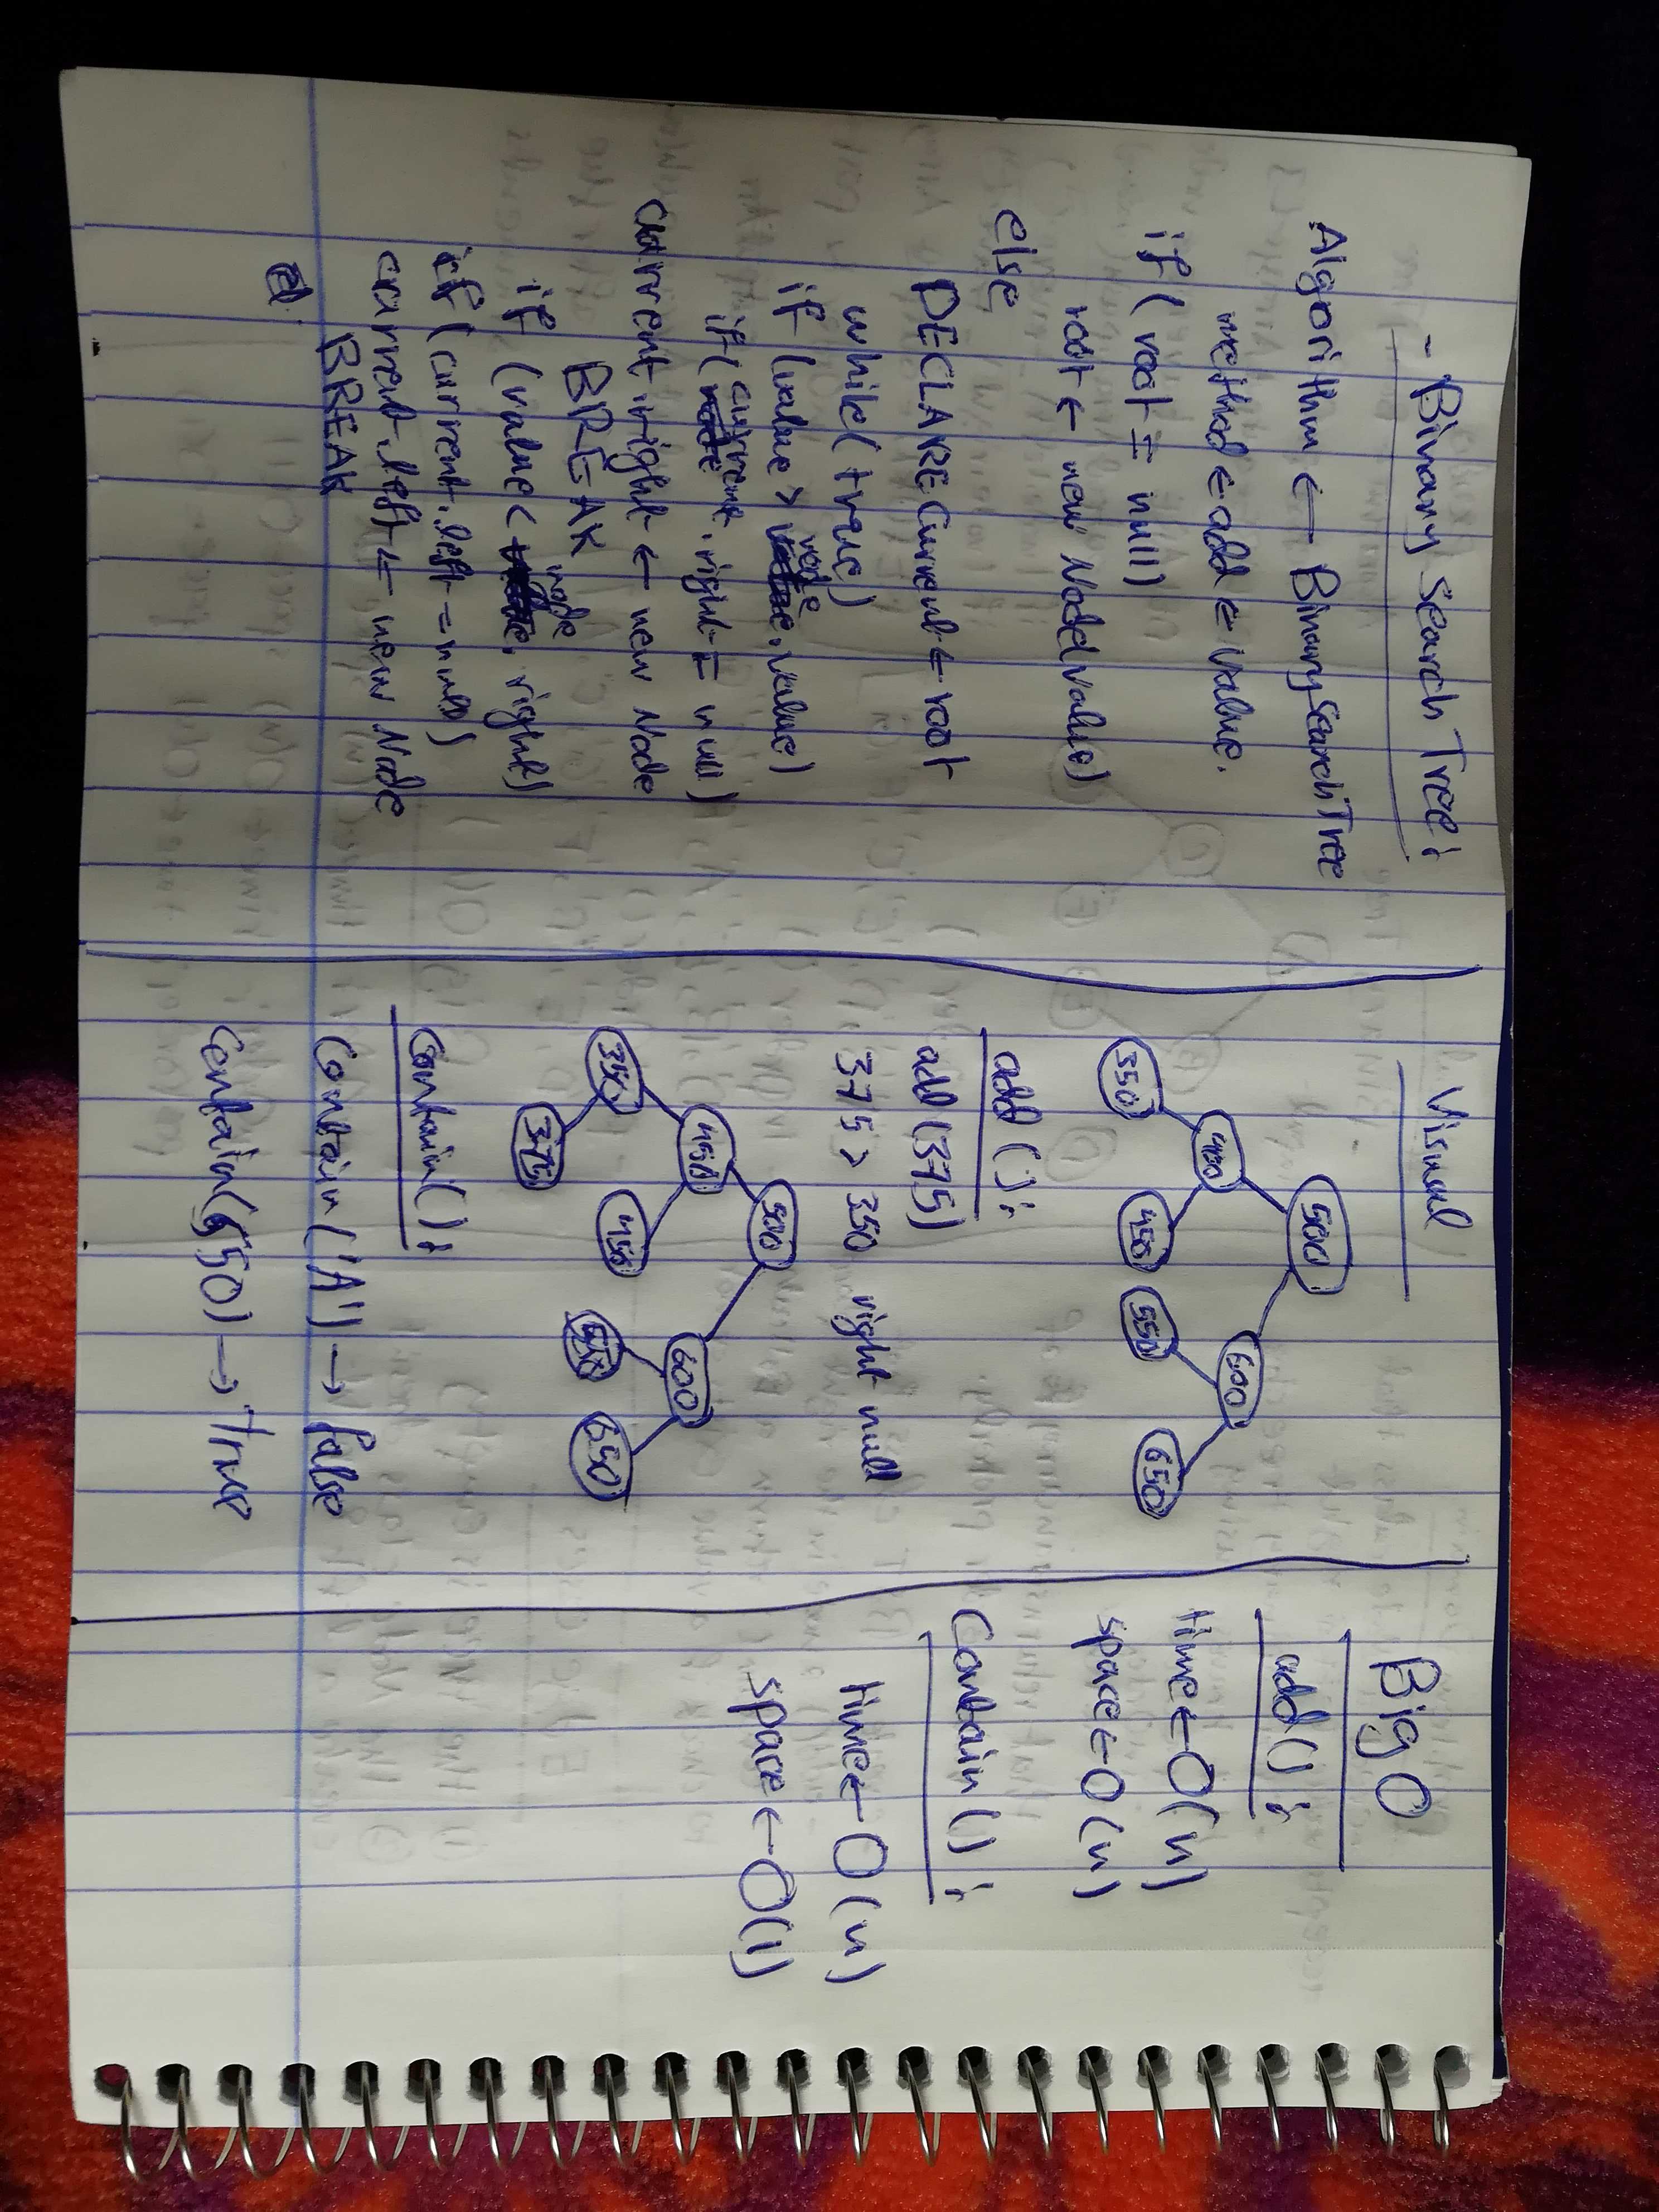 - Binary Search Tree :
Algorithm ← BinarySearchTree
method ← add ← value.
if ( root = null)
root ← new Node(value)
else
DECLARE Current ← root
while (true)
if (value > node.value)
if (current.right = null)
current.right ← new Node
BREAK
if (value < node.right)
if (current.left = null)
current.left ← new Node
BREAK
Visual
500
400 600
350 450 550 650
add ( );
add (375)
375 > 350 right null
500
450 600
350 450 550 650
375
Contain( );
Contain ('A') → false
Contain(550) → True
Big O
add ( );
time ← O(n)
space ← O(n)
Contain ( );
time ← O(n)
space ← O(1)